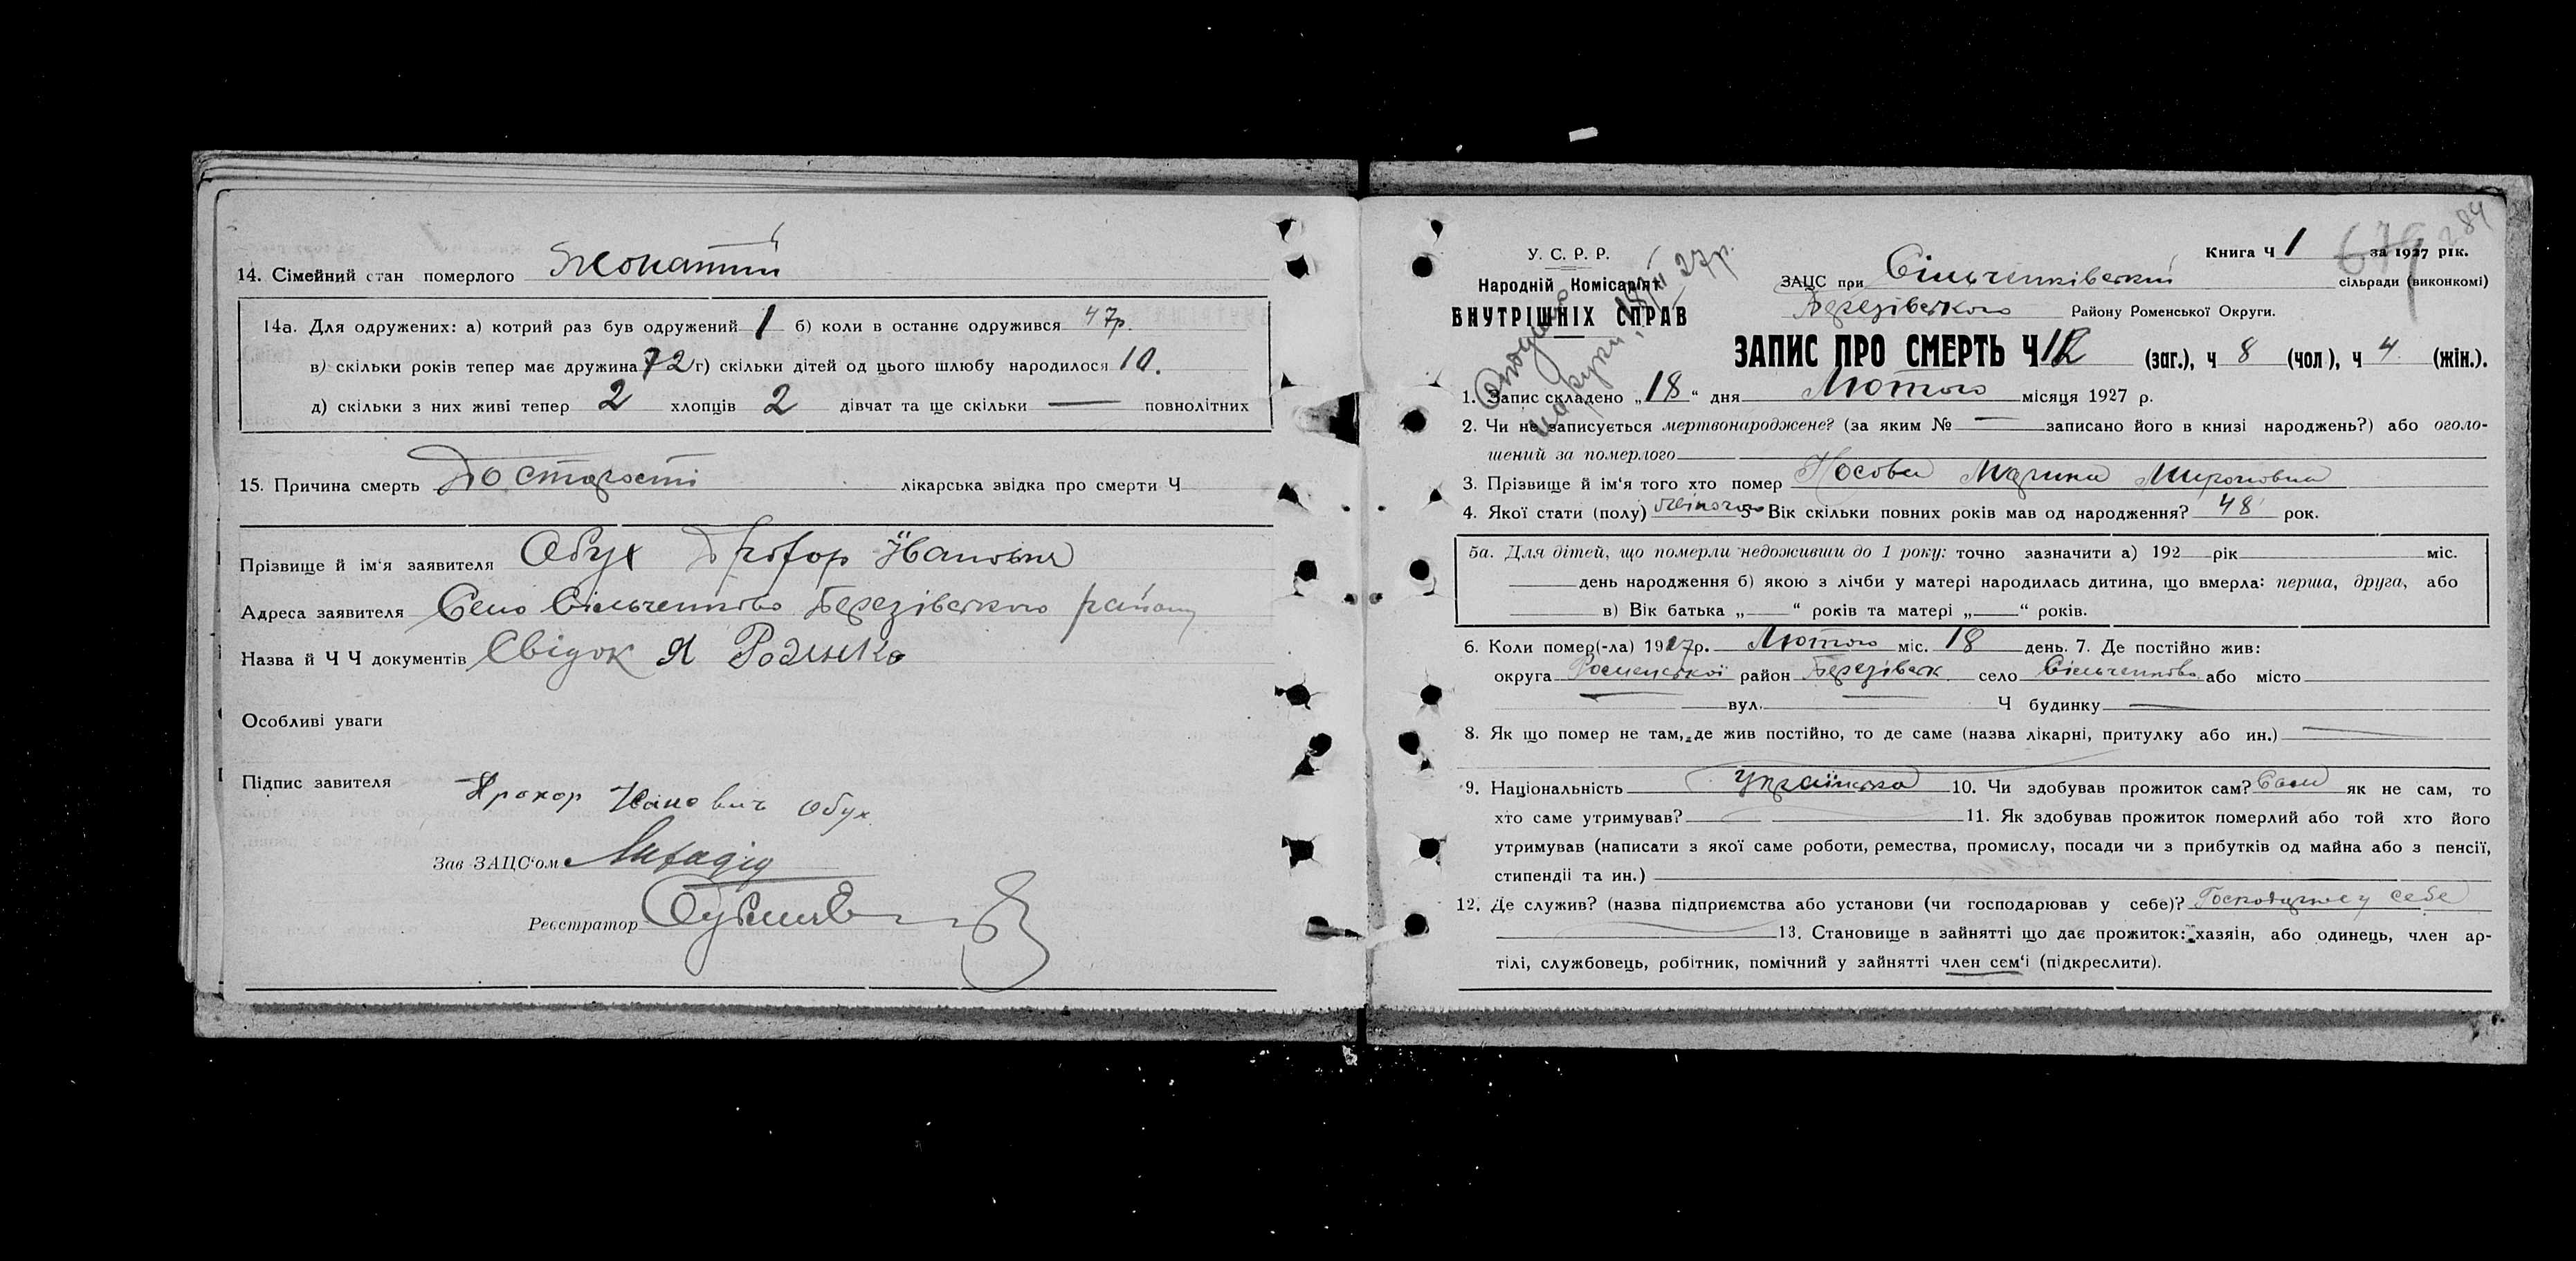 14. Сімейний стан померлого Жонатий
14а. Для одружених: а) котрий раз був одружений 1 б) коли в останнє одружився 47р
в) скільки років тепер має дружина 72 г) скільки дітей од цього шлюбу народилося 10.
д) скільки з них живі тепер 2 хлопців 2 дівчат та ще скільки — повнолітних
15. Причина смерть По старості лікарська звідка про смерти Ч
Прізвище й ім'я заявителя Обух Прохор Іванович
Адреса заявителя Село Сільченково Березівського району
Назва й Ч Ч документів Свідок Я Роденко
Особливі уваги
Підпис завителя Прохор Іванович Обух
Зав ЗАЦС'ом
Реєстратор
284
679
У. С. Р. Р.
Книга Ч 1 за 1927 рік.
Народній Комісаріят
ЗАЦС при Сільченківській сільради (виконкомі)
ВНУТРІШНІХ СПРАВ
Березівського Району Роменської Округи.
на руки 18/II 27р.
ЗАПИС ПРО СМЕРТЬ Ч 12 (заг.), ч 8 (чол), ч 4 (жін.).
1. Запис складено „18“ дня Лютого місяця 1927 р.
2. Чи не записується мертвонароджене? (за яким № — записано його в книзі народжень?) або оголо-
шений за померлого
3. Прізвище й ім'я того хто помер Носова Марина Мироновна
4. Якої стати (полу) жіночого 5 Вік скільки повних років мав од народження? 48 рок.
5а. Для дітей, що померли недоживши до 1 року: точно зазначити а) 192 рік міс.
день народження б) якою з лічби у матері народилась дитина, що вмерла: перша, друга, або
в) Вік батька „—“ років та матері „—“ років.
6. Коли помер(-ла) 1927р. Лютого міс. 18 день. 7. Де постійно жив:
округа Роменської район Березівськ село Сільченково або місто
вул. — Ч будинку —
8. Як що помер не там, де жив постійно, то де саме (назва лікарні, притулку або ин.) —
9. Національність Українка 10. Чи здобував прожиток сам? Сам як не сам, то
хто саме утримував? — 11. Як здобував прожиток померлий або той хто його
утримував (написати з якої саме роботи, ремества, промислу, посади чи з прибутків од майна або з пенсії,
стипендіі та ин.)
12. Де служив? (назва підприємства або установи (чи господарював у себе)? у себе
13. Становище в зайнятті що дає прожиток: хазяін, або одинець, член ар-
тілі, службовець, робітник, помічний у зайнятті член сем'і (підкреслити).